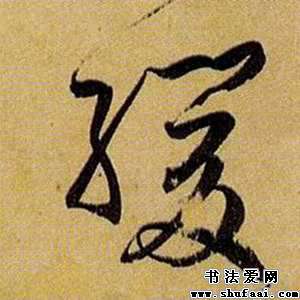 緩
书法爱网
www.shufaai.com